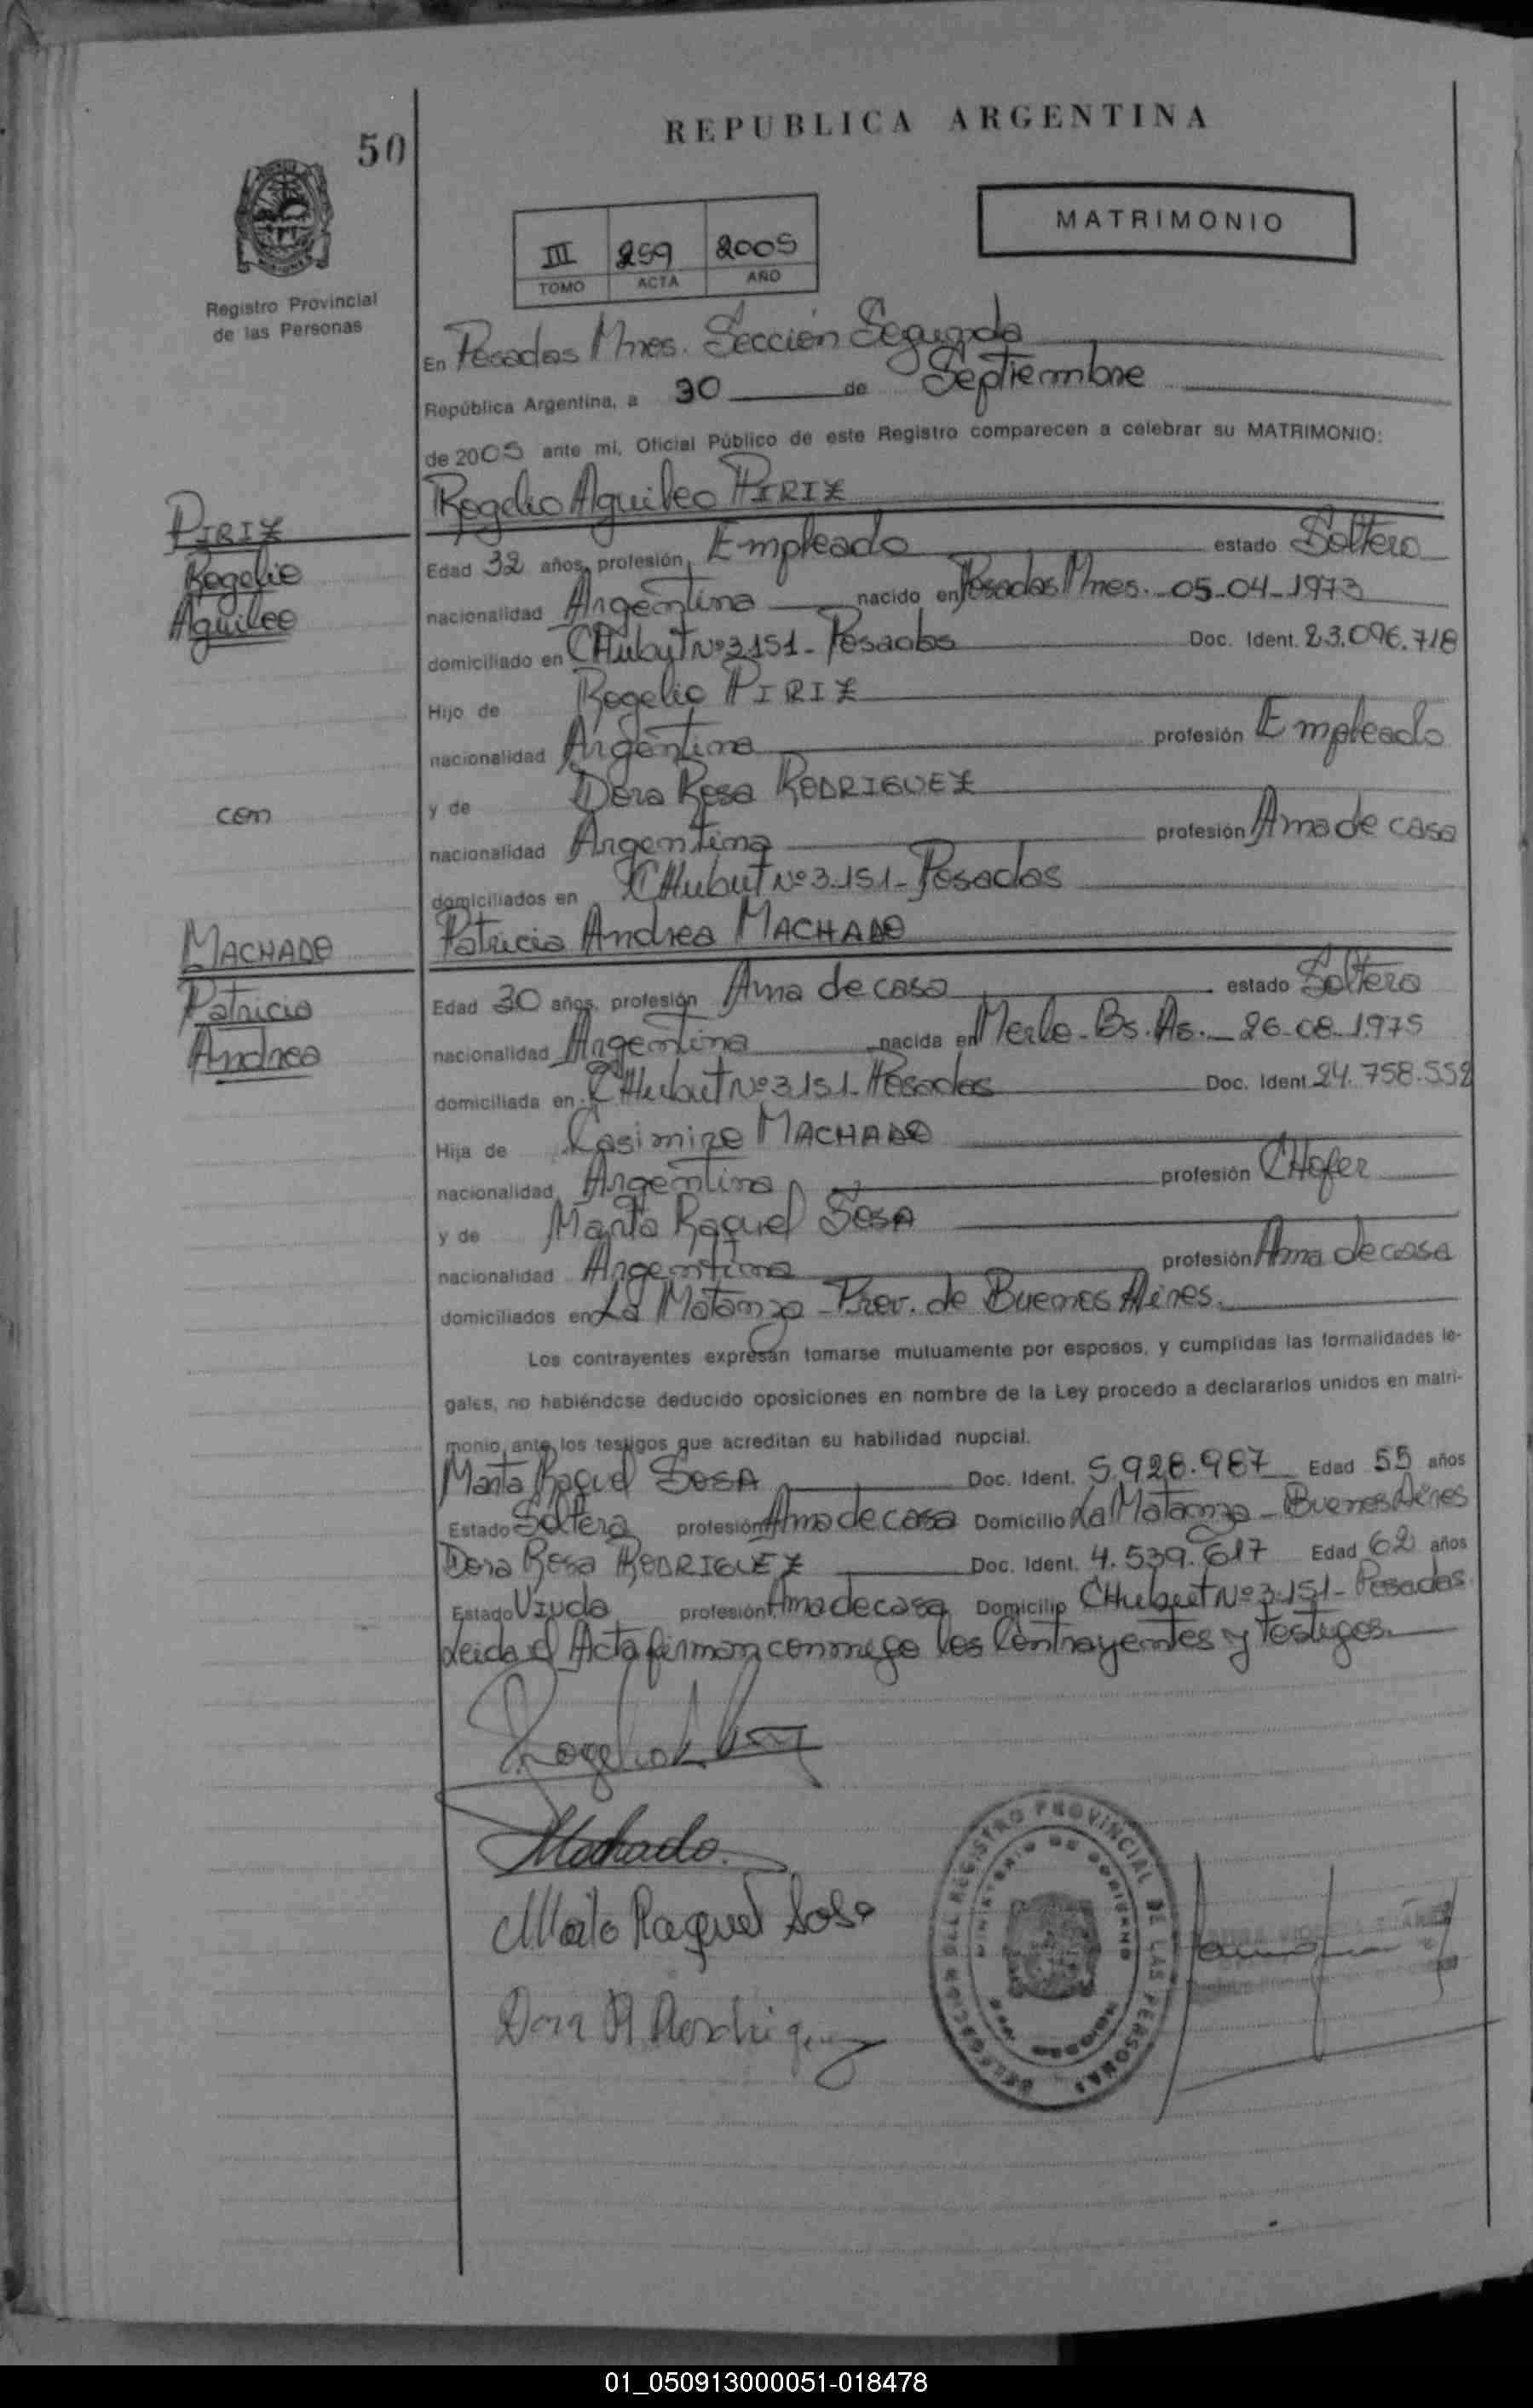 50
REPUBLICA ARGENTINA
MATRIMONIO
III 259 2005
TOMO ACTA AÑO
Registro Provincial
de las Personas
En Posadas Mnes. Sección Segunda
República Argentina, a 30 de Septiembre
de 2005 ante mi, Oficial Público de este Registro comparecen a celebrar su MATRIMONIO:
PIRIZ
Rogelio
Aguileo
Rogelio Aguileo PIRIZ
Edad 32 años, profesión Empleado estado Soltero
nacionalidad Argentina nacido en Posadas Mnes. - 05-04-1973
domiciliado en CHubut Nº 3151 - Posadas Doc. Ident. 23.096.718
Hijo de Rogelio PIRIZ
nacionalidad Argentina profesión Empleado
con
y de Dora Rosa RODRIGUEZ
nacionalidad Argentina profesión Ama de casa
domiciliados en CHubut Nº 3.151 - Posadas
MACHADO
Patricia
Andrea
Patricia Andrea MACHADO
Edad 30 años, profesión Ama de casa estado Soltera
nacionalidad Argentina nacida en Merlo - Bs. As. - 26-08-1975
domiciliada en CHubut Nº 3151 - Posadas Doc. Ident. 24.758.552
Hija de Casimiro MACHADO
nacionalidad Argentina profesión CHofer
y de Marta Raquel SOSA
nacionalidad Argentina profesión Ama de casa
domiciliados en La Matanza - Prov. de Buenos Aires.
Los contrayentes expresan tomarse mutuamente por esposos, y cumplidas las formalidades le-
gales, no habiéndose deducido oposiciones en nombre de la Ley procedo a declararlos unidos en matri-
monio, ante los testigos que acreditan su habilidad nupcial.
Marta Raquel SOSA Doc. Ident. 5.928.987 Edad 55 años
Estado Soltera profesión Ama de casa Domicilio La Matanza - Buenos Aires
Dora Rosa RODRIGUEZ Doc. Ident. 4.539.617 Edad 62 años
Estado Viuda profesión Ama de casa Domicilio CHubut Nº 3.151 - Posadas.
Leida el Acta firman conmigo los Contrayentes y Testigos.
Machado.
Marta Raquel Sosa
Dora R. Rodriguez
DELEGACION DEL REGISTRO PROVINCIAL DE LAS PERSONAS
MINISTERIO DE GOBIERNO
01_050913000051-018478